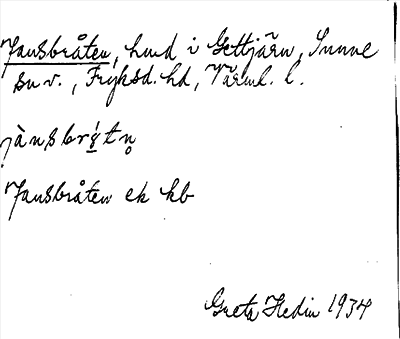 Jansbråten, hmd i Gettjärn, Sunne
sn v., Fryksd. hd, Värml. l.
jànsbrǫ́tn̥
Jansbråten ek kb
Greta Hedin 1934